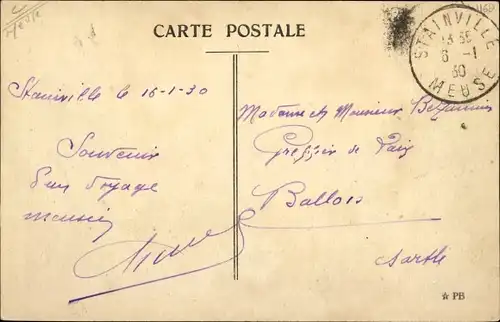 Meuse
CARTE POSTALE
STAINVILLE
13 35
6 -1
30
MEUSE
Stainville le 16-1-30
Souvenir
d'un Voyage
Madame et Monsieur
Greffier de Paix
Ballon
Sarthe
☆ PB